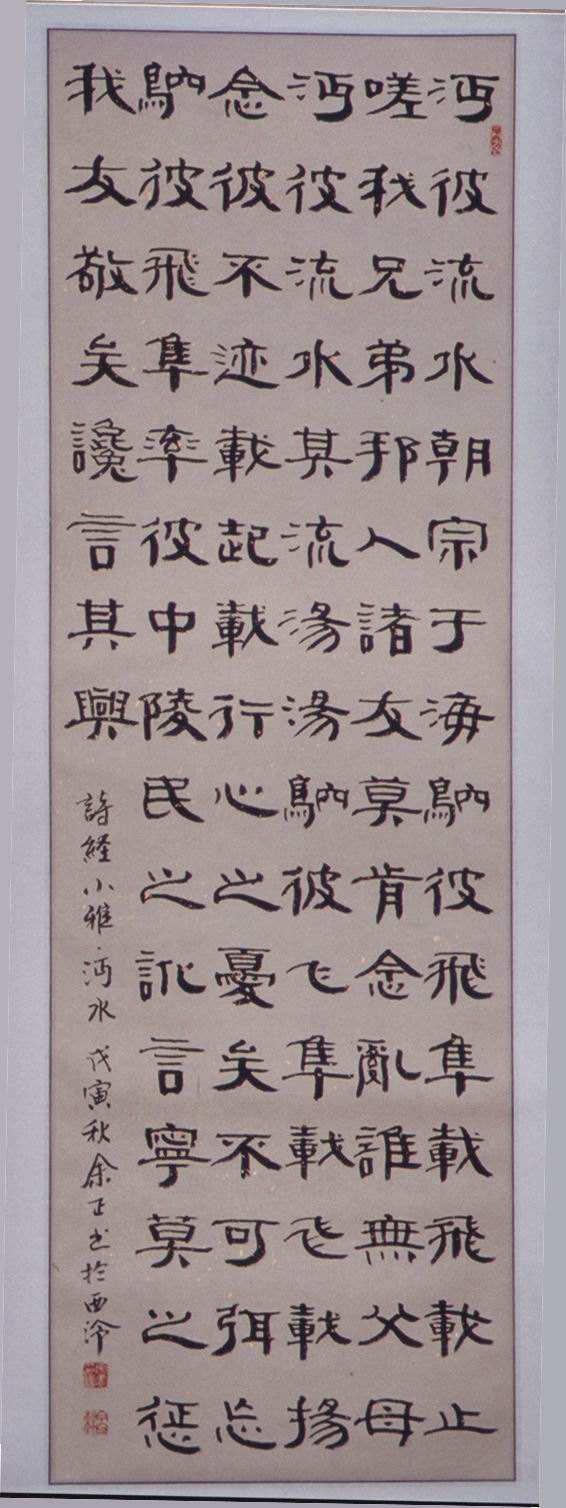 沔彼流水朝宗于海鴥彼飛隼載飛載止
嗟我兄弟邦人諸友莫肯念亂誰無父母
沔彼流水其流湯湯鴥彼飞隼載飞載揚
念彼不迹載起載行心之憂矣不可弭忘
鴥彼飛隼率彼中陵民之訛言寧莫之惩
我友敬矣讒言其興
詩経小雅·沔水 戊寅秋余正书於西泠